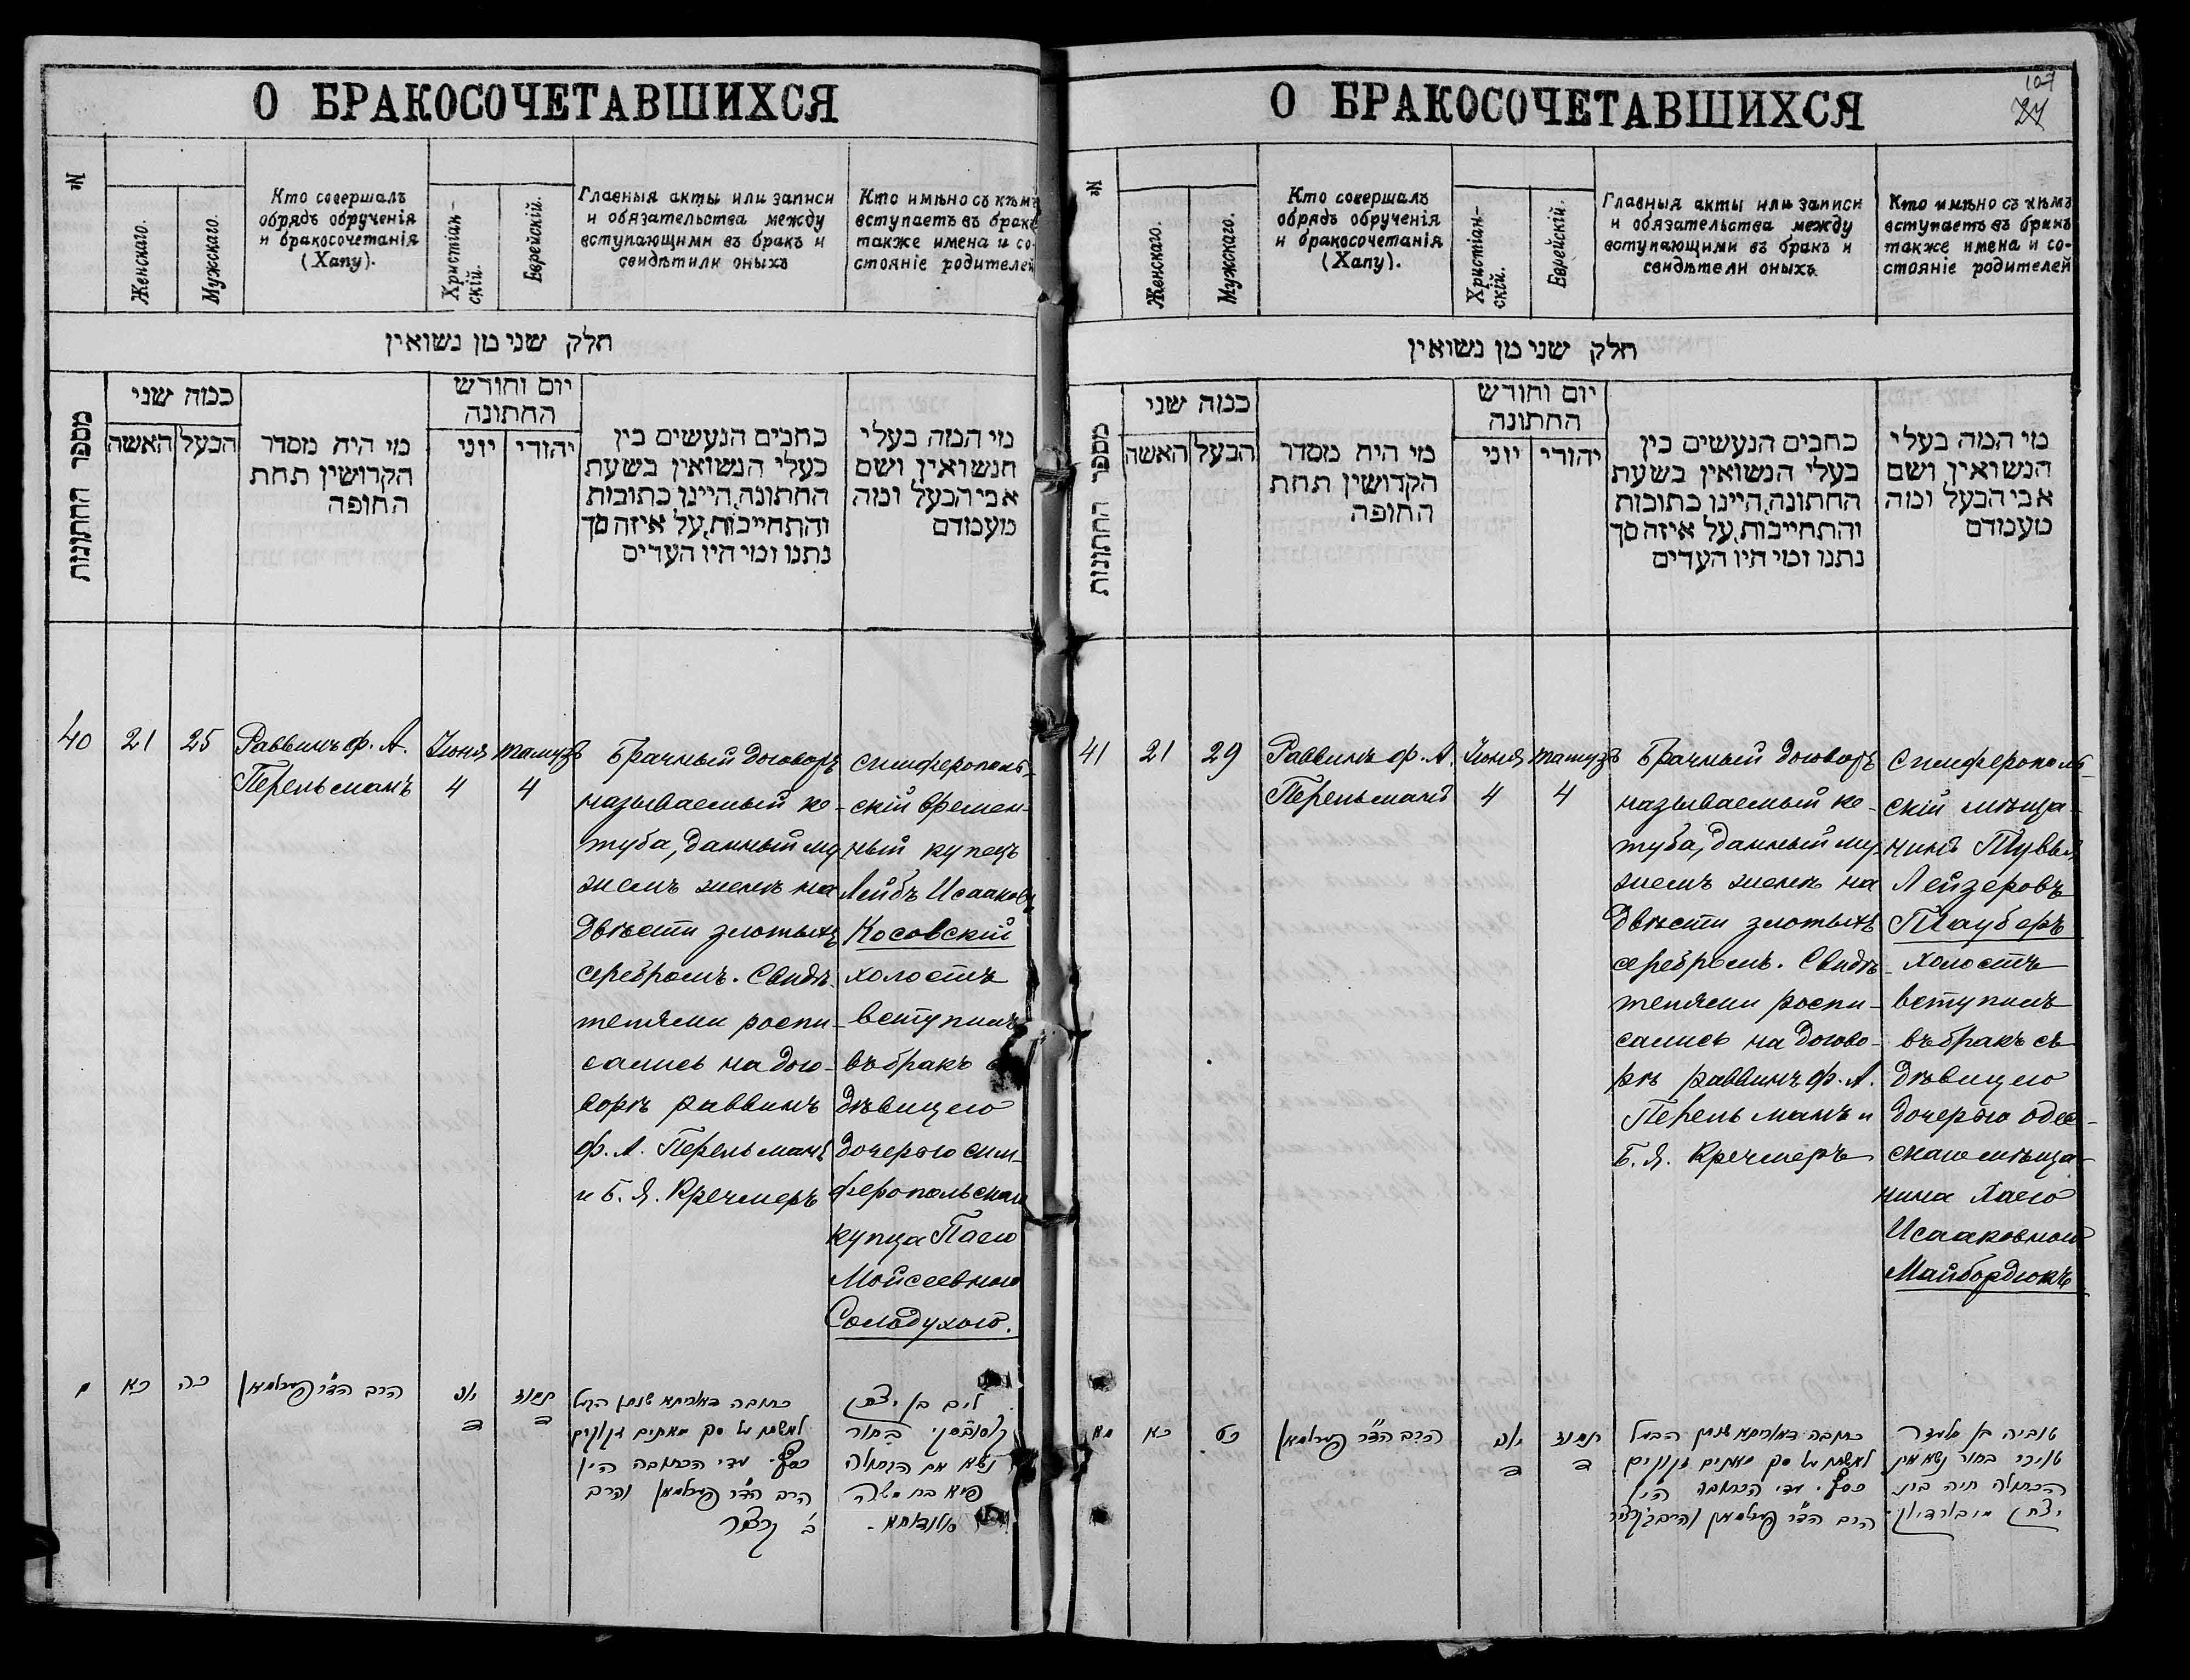 О БРАКОСОЧЕТАВШИХСЯ
№
Женскаго.
Мужскаго.
Кто совершалъ
обрядъ обрученія
и бракосочетанія
(Хапу).
Христіан-
скій.
Еврейскій.
Главныя акты или записи
и обязательства между
вступающими въ бракъ и
свидѣтили оныхъ
Кто имѣно съ кѣмъ
вступаетъ въ бракъ
также имена и со-
стояніе родителей
חלק שני מן נשואין
מספר החתונות
כמה שני
האשה
הבעל
מי היה מסדר
הקדושין תחת
החופה
יום וחודש
החתונה
יוני
יהודי
כתבים הנעשים בין
בעלי הנשואין בשעת
החתונה, היינו כתובות
והתחייבות, על איזה סך
נתנו ומי היו העדים
מי המה בעלי
הנשואין ושם
אבי הבעל ומה
מעמדם
40
21
25
Раввинъ Ф. А.
Перельманъ
Іюня
4
тамузъ
4
Брачный договоръ
называемый ке-
туба, данный му
жемъ женѣ на
двѣсти злотыхъ
серебромъ. Свидѣ-
телями роспи-
сались на дого-
ворѣ раввинъ
Ф. А. Перельманъ
и Б. Я. Кречмеръ
симферополь-
скій времен-
ный купецъ
Лейбъ Исааковъ
Косовскій
холостъ
вступилъ
въ бракъ
дѣвицею
дочерью сим-
феропольскаго
купца Пасею
Мойсеевною
Солодухою.
מ
כא
כה
הרב הד"ר פערלמאן
יוני
ד
תמוז
ד
כתובה דאוריתא שנתן הבעל
לאשתו על סך מאתים זקוקים
כסף. עדי הכתובה היו
הרב הד"ר פערלמאן והרב
ב׳ קרצמר
ליב בן יצחק
קוסובסקי בחור
נשא את הבתולה
פסיא בת משה
סולודוחא.
О БРАКОСОЧЕТАВШИХСЯ
107
№
Женскаго.
Мужскаго.
Кто совершалъ
обрядъ обрученія
и бракосочетанія
(Хапу).
Христіан-
скій.
Еврейскій.
Главныя акты или записи
и обязательства между
вступающими въ бракъ и
свидѣтели оныхъ
Кто имѣно съ кѣмъ
вступаетъ въ бракъ
также имена и со-
стояніе родителей
חלק שני מן נשואין
מספר החתונות
כמה שני
האשה
הבעל
מי היה מסדר
הקדושין תחת
החופה
יום וחודש
החתונה
יוני
יהודי
כתבים הנעשים בין
בעלי הנשואין בשעת
החתונה, היינו כתובות
והתחייבות, על איזה סך
נתנו ומי היו העדים
מי המה בעלי
הנשואין ושם
אבי הבעל ומה
מעמדם
41
21
29
Раввинъ Ф. А.
Перельманъ
Іюня
4
тамузъ
4
Брачный договоръ
называемый ке-
туба, данный му
жемъ женѣ на
двѣсти злотыхъ
серебромъ. Свидѣ-
телями роспи-
сались на догово-
рѣ раввинъ Ф. А.
Перельманъ и
Б. Я. Кречмеръ
Симферополь-
скій мѣща-
нинъ Тувья
Лейзеровъ
Тауберъ
холостъ
вступилъ
въ бракъ съ
дѣвицею
дочерью одес-
скаго мѣща-
нина Хаею
Исааковною
Майбордюкъ
מא
כא
כט
הרב הד"ר פערלמאן
יוני
ד
תמוז
ד
כתובה דאוריתא שנתן הבעל
לאשתו על סך מאתים זקוקים
כסף. עדי הכתובה היו
הרב הד"ר פערלמאן והרב ב׳ קרצמר
טוביה בן אלעזר
טויבר בחור נשא את
הבתולה חיה בת
יצחק מיבורדיוק